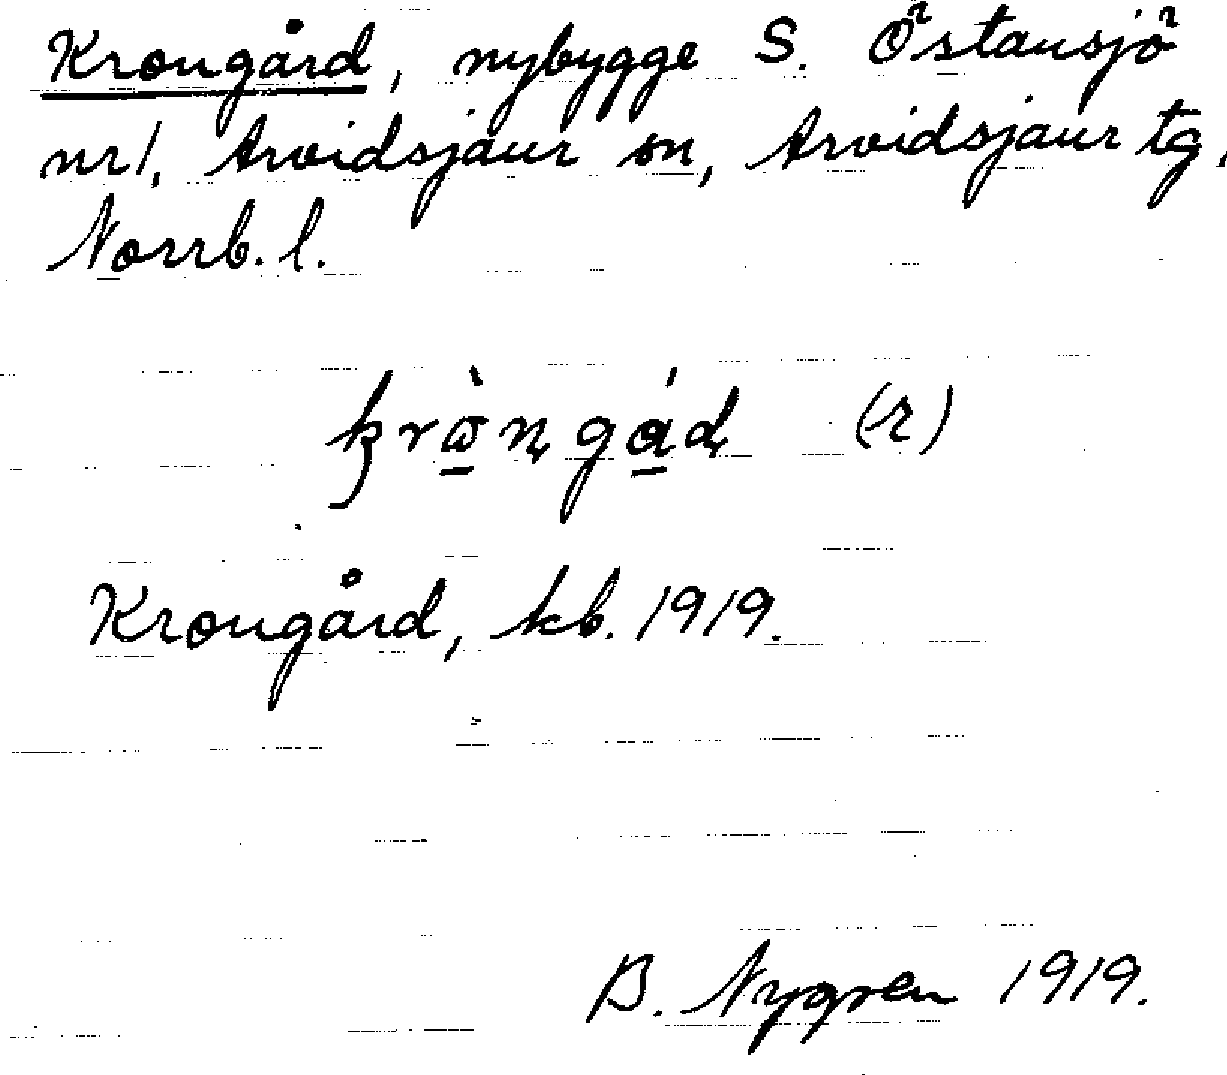 Krongård, nybygge S. Östansjö
nr 1, Arvidsjaur sn, Arvidsjaur tg,
Norrb. l.
(-r)
Krongård, kb. 1919.
B. Nygren 1919.